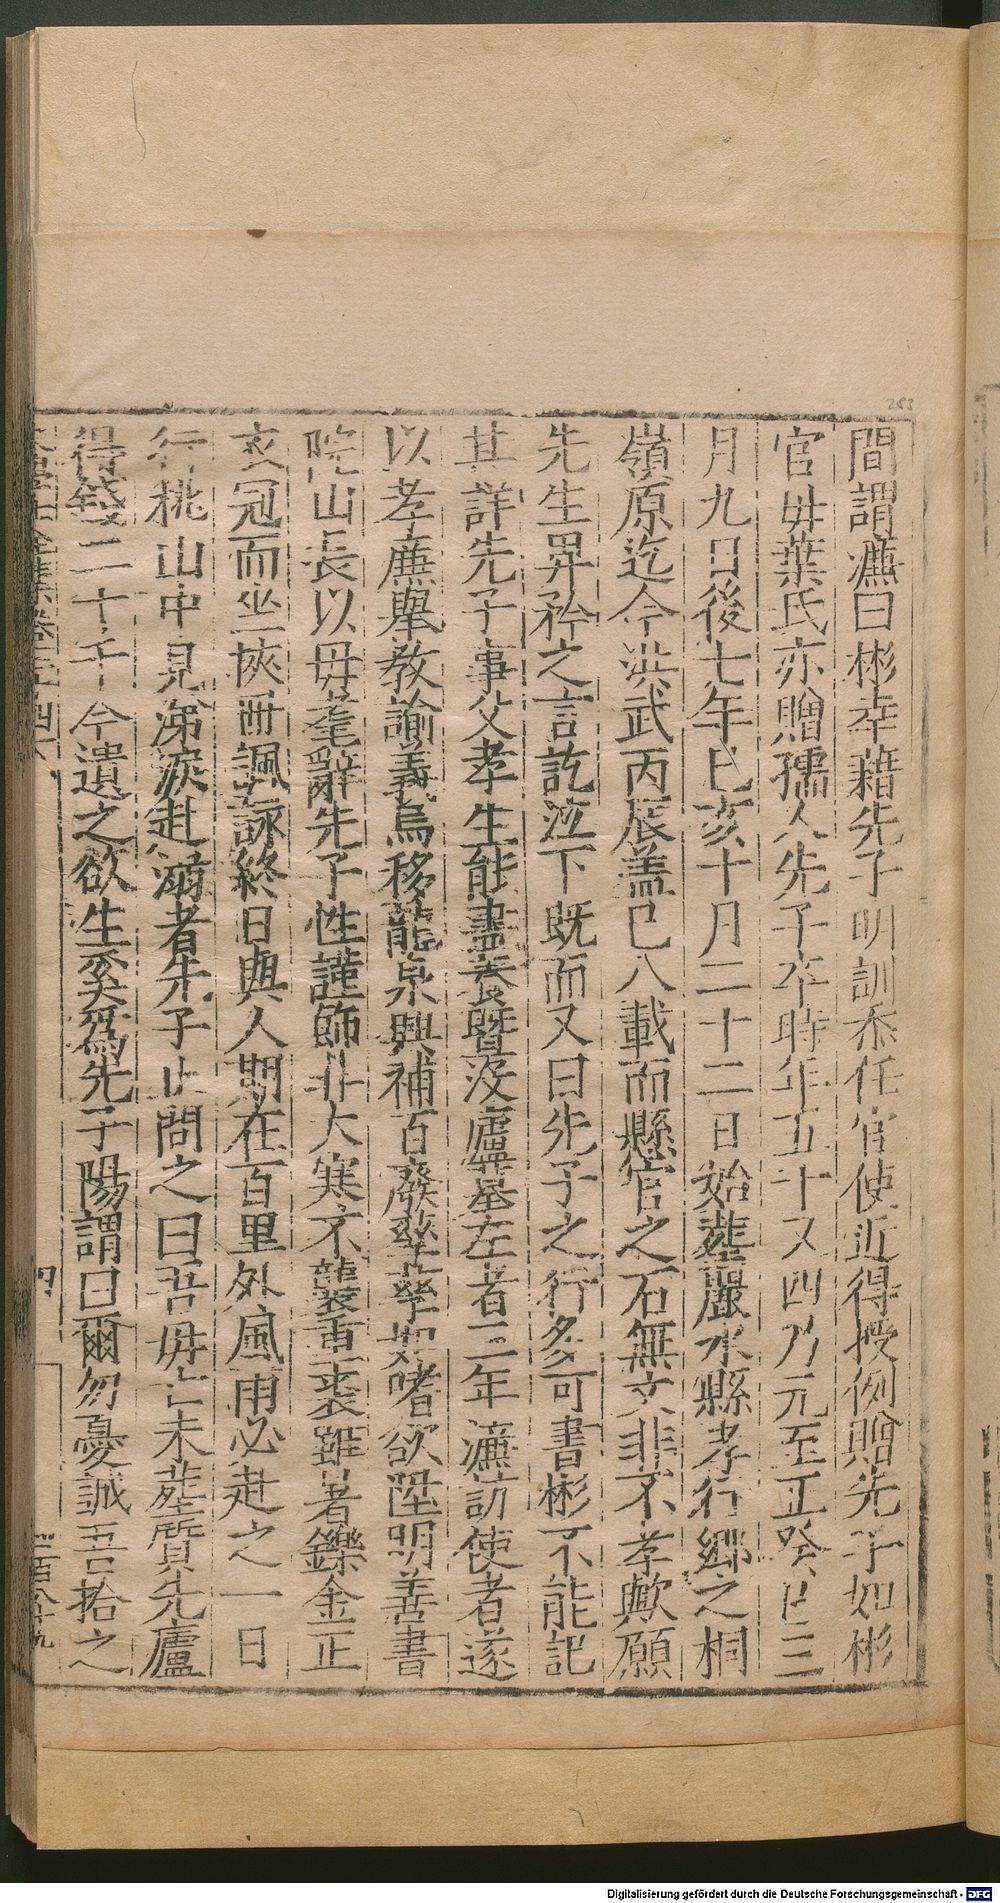 間謂濂曰彬幸藉先子明訓忝任官使近得授例贈先子如彬
官毋葉氏亦贈孺人先子卒時年五十又四乃元至正癸巳三
月九日後七年己亥十月二十二日始塟麗水縣孝行鄉之桐
嶺原迄今洪武丙辰蓋已八載而懸官之石無文非不孝歟願
先生畀矜之言訖泣下既而又曰先子之行多可書彬不能記
其詳先子事父孝生能盡養暨沒廬墓左者三年濂訪使者遂
以孝廉舉教諭義烏移龍泉興補百廢孳孳如嗜欲陞明善書
院山長以毋耄辭先子性謹飾非大寒不襲重裘雖暑鑠金正
衣冠而坐挾冊諷詠終日與人期在百里外風雨必赴之一日
行桃山中見涕淚赴溺者先子止問之曰吾毋亡未塟質先廬
得錢二十千今遺之欲生奚爲先子陽謂曰爾勿憂誠吾拾之
四
二百八十九
283
Digitalisierung gefördert durch die Deutsche Forschungsgemeinschaft - DFG